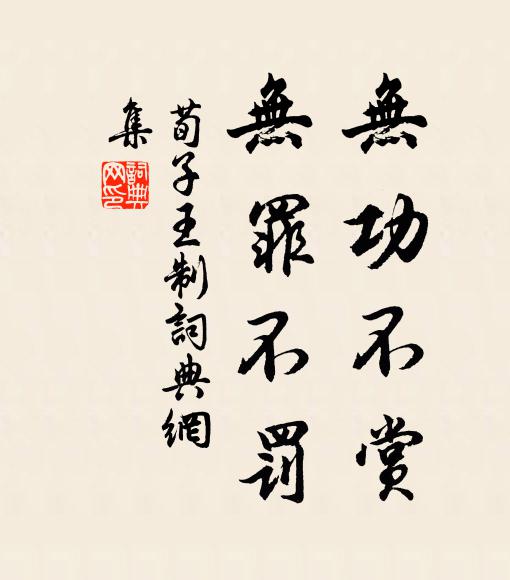 無功不賞
無罪不罰
荀子王制詞典網
集
詞典
网印